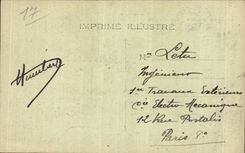 17
IMPRIMÉ ILLUSTRÉ
Mr Letu
Ingénieur
1er Travaux Extérieurs
Cie Electro Mecanique
12 Rue Portalis
Paris 8e